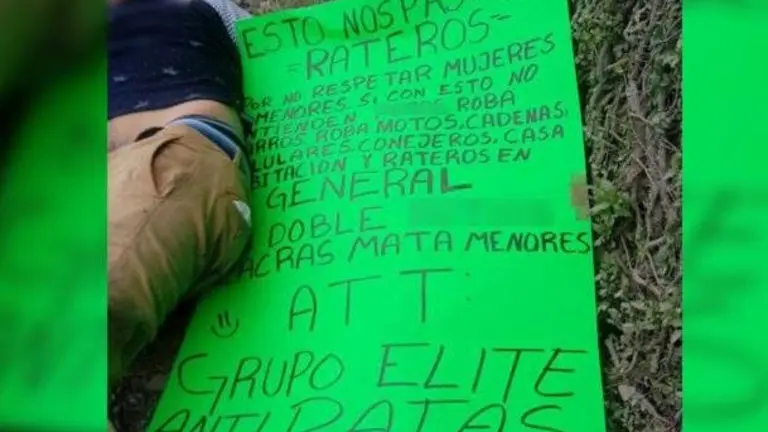 ESTO NOS PAS
=RATEROS=
POR NO RESPETAR MUJERES
MENORES SI CON ESTO NO
NTIENDEN ROBA
ARROS, ROBA MOTOS, CADENAS,
LULARES, CONEJEROS, CASA
BITACION Y RATEROS EN
GENERAL
DOBLE
LACRAS MATA MENORES
ATT:
GRUPO ELITE
ANTI RATAS